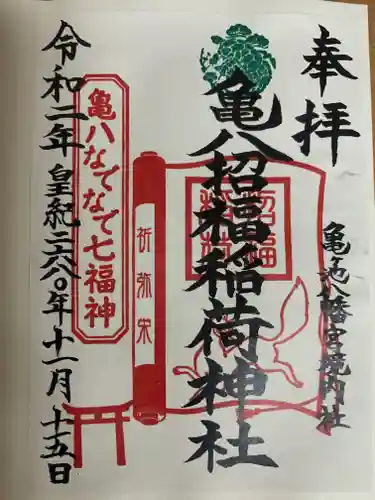 奉拝
亀池八幡宮境内社
亀八招福稲荷神社
招福稲荷
祈弥栄
亀八なでなで七福神
令和二年皇紀二六八〇年十一月十五日